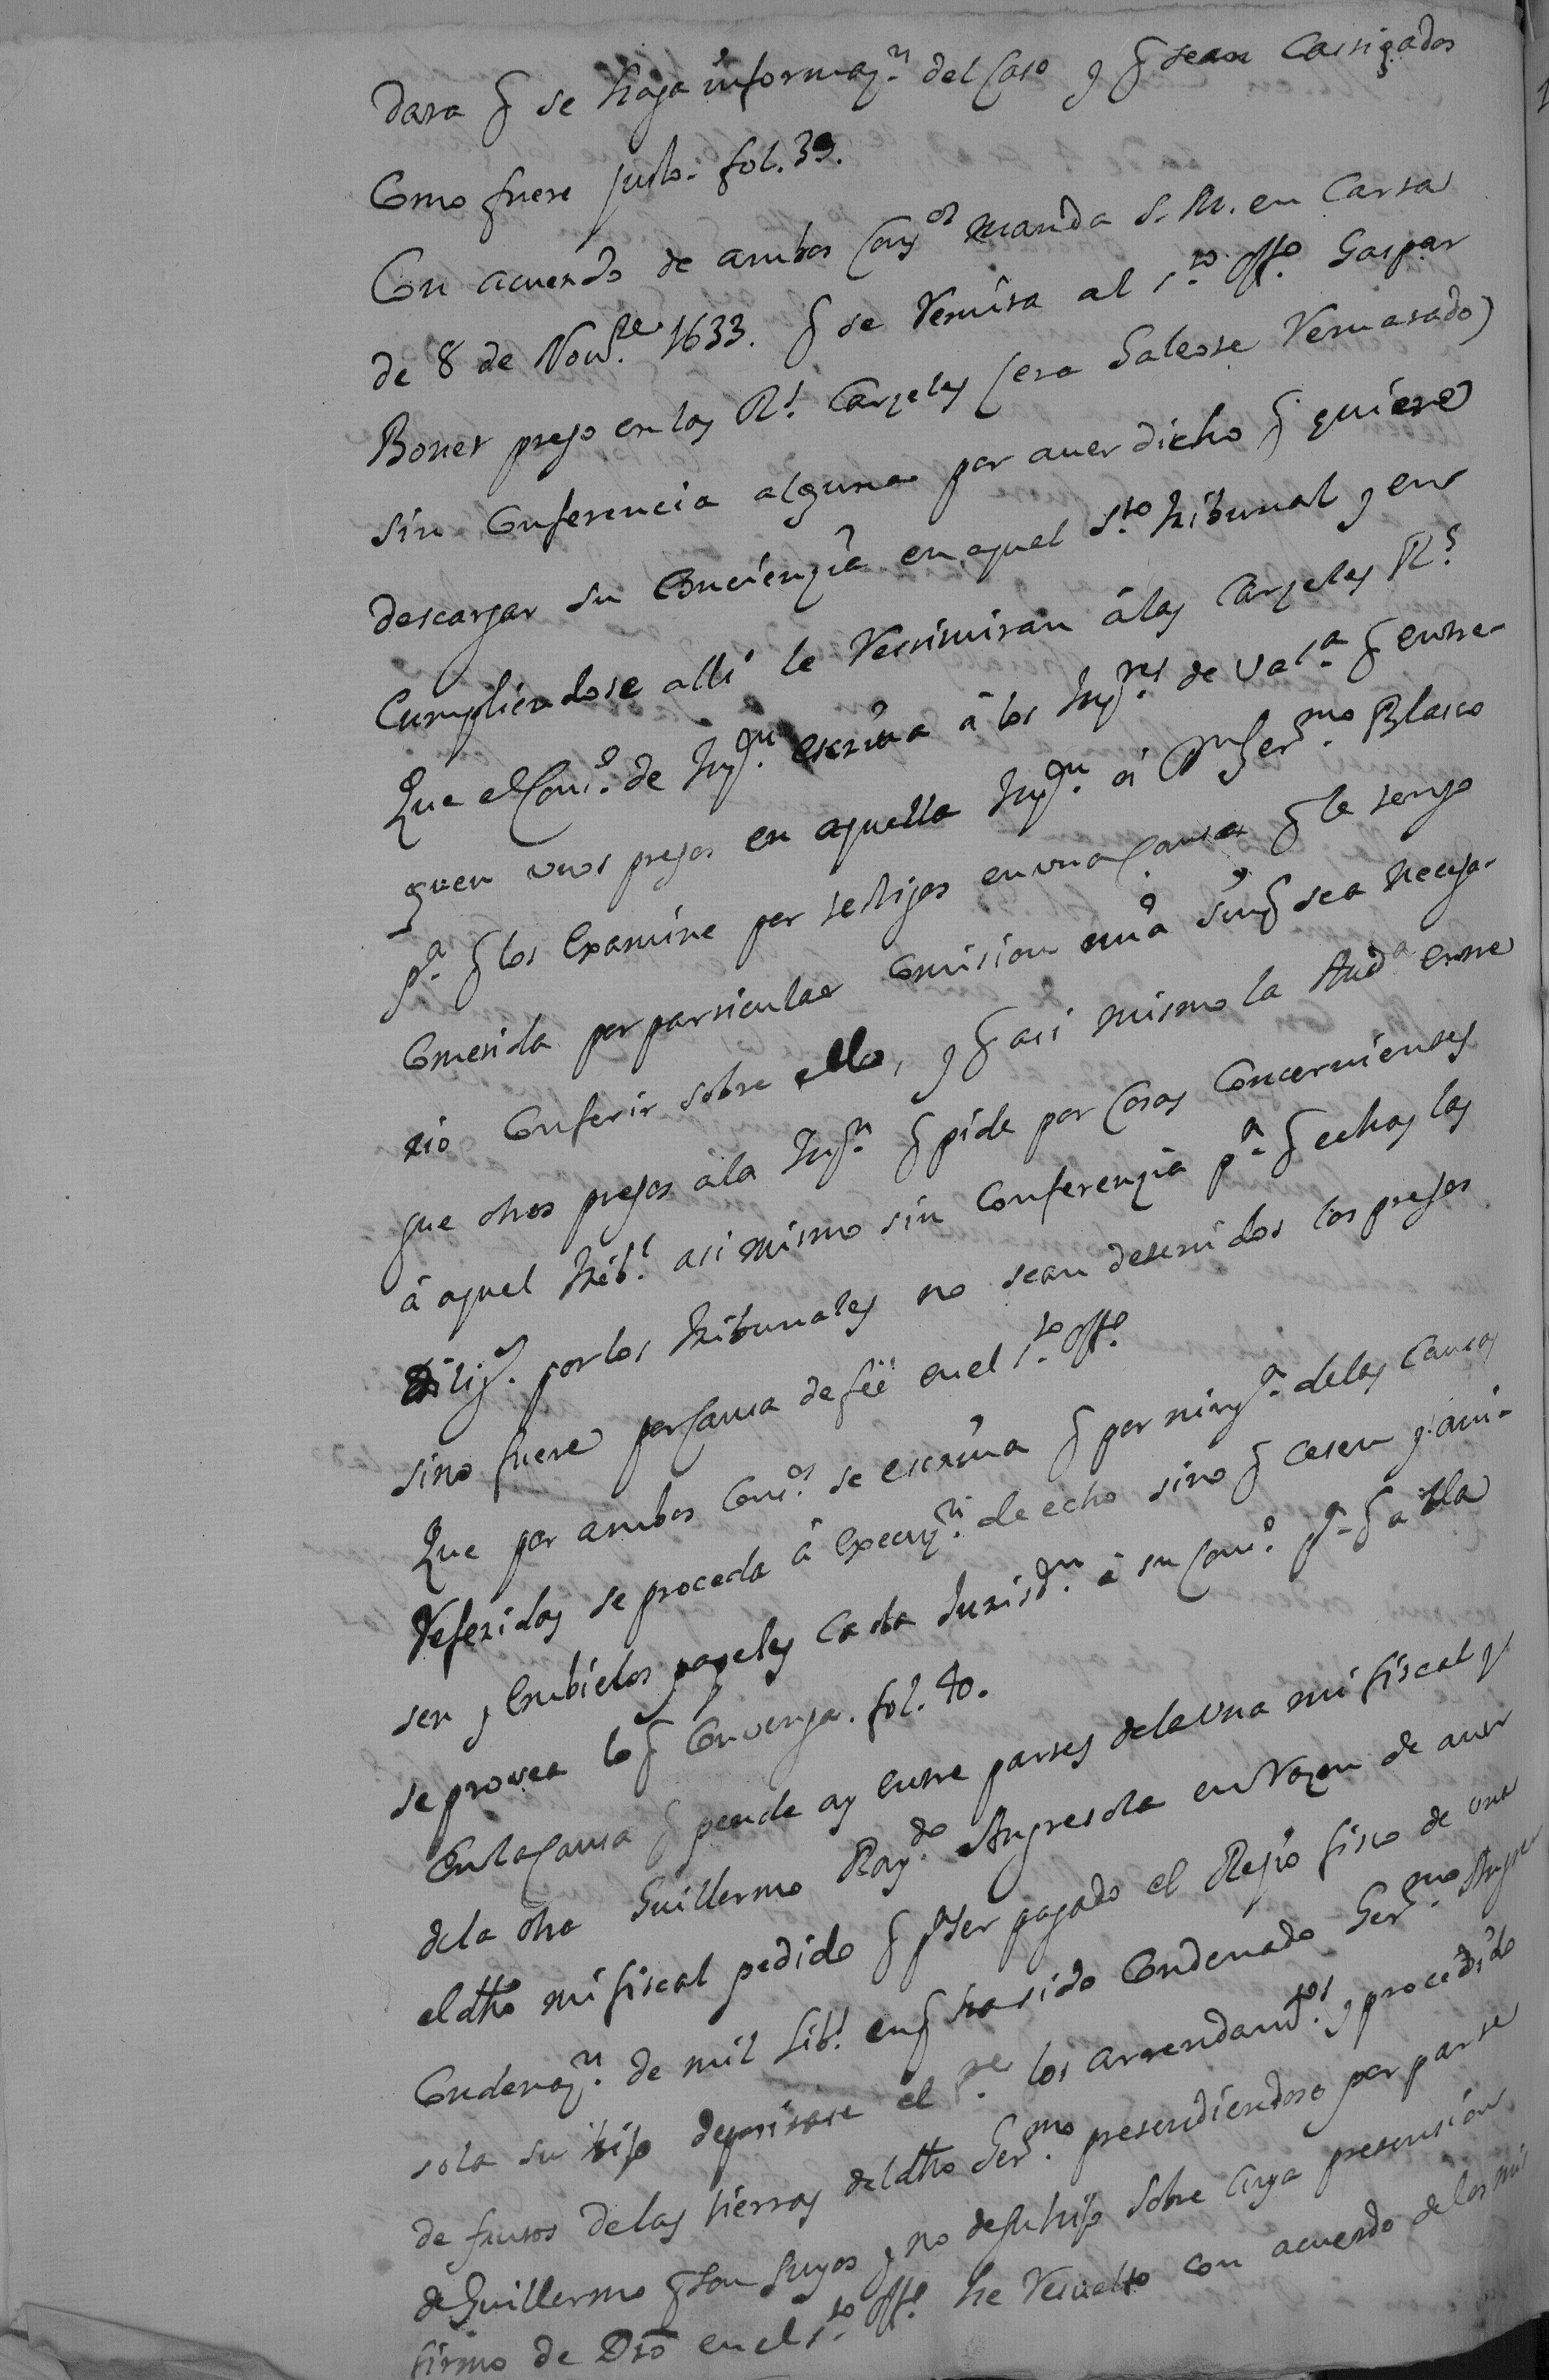 dara q̃ se haga informaçn. del caso y q̃ sean castigados
Como fuere justo. fol. 39.
Con acuerdo de ambos Conss. manda S. M. en carta
de 8 de Nou.re 1633. q̃ se remita al s.to off.o Gaspar
Bonet preso en las Rs. carçeles (era Galeote rematado)
sin conferencia alguna por auer dicho q̃ quiere
descargar su conciençia en aquel s.to tribunal y en
cumpliendose alli le restituiran â las carçeles Rs.
Que el Cons.o de Inqq.on escriua â los Inqq.res de Val.a q̃ entre-
guen unos presos en aquella Inqq.on â Don Ger.mo Blasco
p.a q̃ los examine por testigos en una causa q̃ le tengo
cometida por particular comision mia sin q̃ sea neçesa-
rio conferir sobre ello, y q̃ asi mismo la Aud.a entre
gue otros presos a la Inqq.n q̃ pide por cosas concernientes
â aquel trib.l asi mismo sin conferençia p.a q̃ echas las
dilig.s por los tribunales no sean detenidos los presos
sino fuere por causa de feê en el s.to off.o
Que por ambos Cons.os se escriua q̃ por ning.a de las causas
referidas se proceda â execuç.n de echo sino q̃ cesen y aui-
sen y embie los papeles cada Jurisd.on â su Cons.o p.a q̃ alla
se prouea lo q̃ conuenga. fol. 40.
En la causa q̃ pende ay entre partes de la una mi fiscal y
de la otra Guillermo Ray.do Anglesola en razon de auer
el dho mi fiscal pedido q̃ p.a ser pagado el Regio fisco de una
Condenaç.n de mil lib.s en q̃ ha sido condenado Ger.mo Angle
sola su hijo depositase el P.e los arrendam.tos y procedido
de frutos de las tierras del dho Ger.mo pretendiendose por parte
de Guillermo q̃ son suyos y no de su hijo sobre cuya pretension
firmo de Dro en el s.to off.o he resuelto con acuerdo de los mis